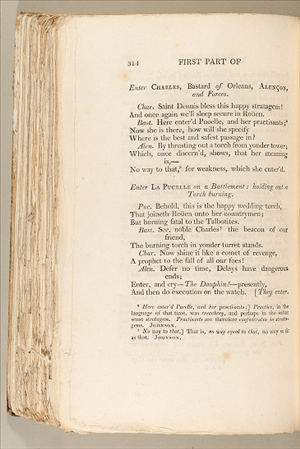 314 FIRST PART OF
Enter CHARLES, Bastard of Orleans, ALENÇON,
and Forces.
Char. Saint Dennis bless this happy stratagem!
And once again we'll sleep secure in Roüen.
Bast. Here enter'd Pucelle, and her practisants;⁸
Now she is there, how will she specify
Where is the best and safest passage in?
Alen. By thrusting out a torch from yonder tower;
Which, once discern'd, shows, that her meaning
is,—
No way to that,⁹ for weakness, which she enter'd.
Enter LA PUCELLE on a Battlement: holding out a
Torch burning.
Puc. Behold, this is the happy wedding torch,
That joineth Roüen unto her countrymen;
But burning fatal to the Talbotites.
Bast. See, noble Charles! the beacon of our
friend,
The burning torch in yonder turret stands.
Char. Now shine it like a comet of revenge,
A prophet to the fall of all our foes!
Alen. Defer no time, Delays have dangerous
ends;
Enter, and cry—The Dauphin!—presently,
And then do execution on the watch. [They enter.
⁸ Here enter'd Pucelle, and her practisants;] Practice, in the
language of that time, was treachery, and perhaps in the softer
sense stratagem. Practisants are therefore confederates in strata-
gems. JOHNSON.
⁹ No way to that,] That is, no way equal to that, no way so fit
as that. JOHNSON.